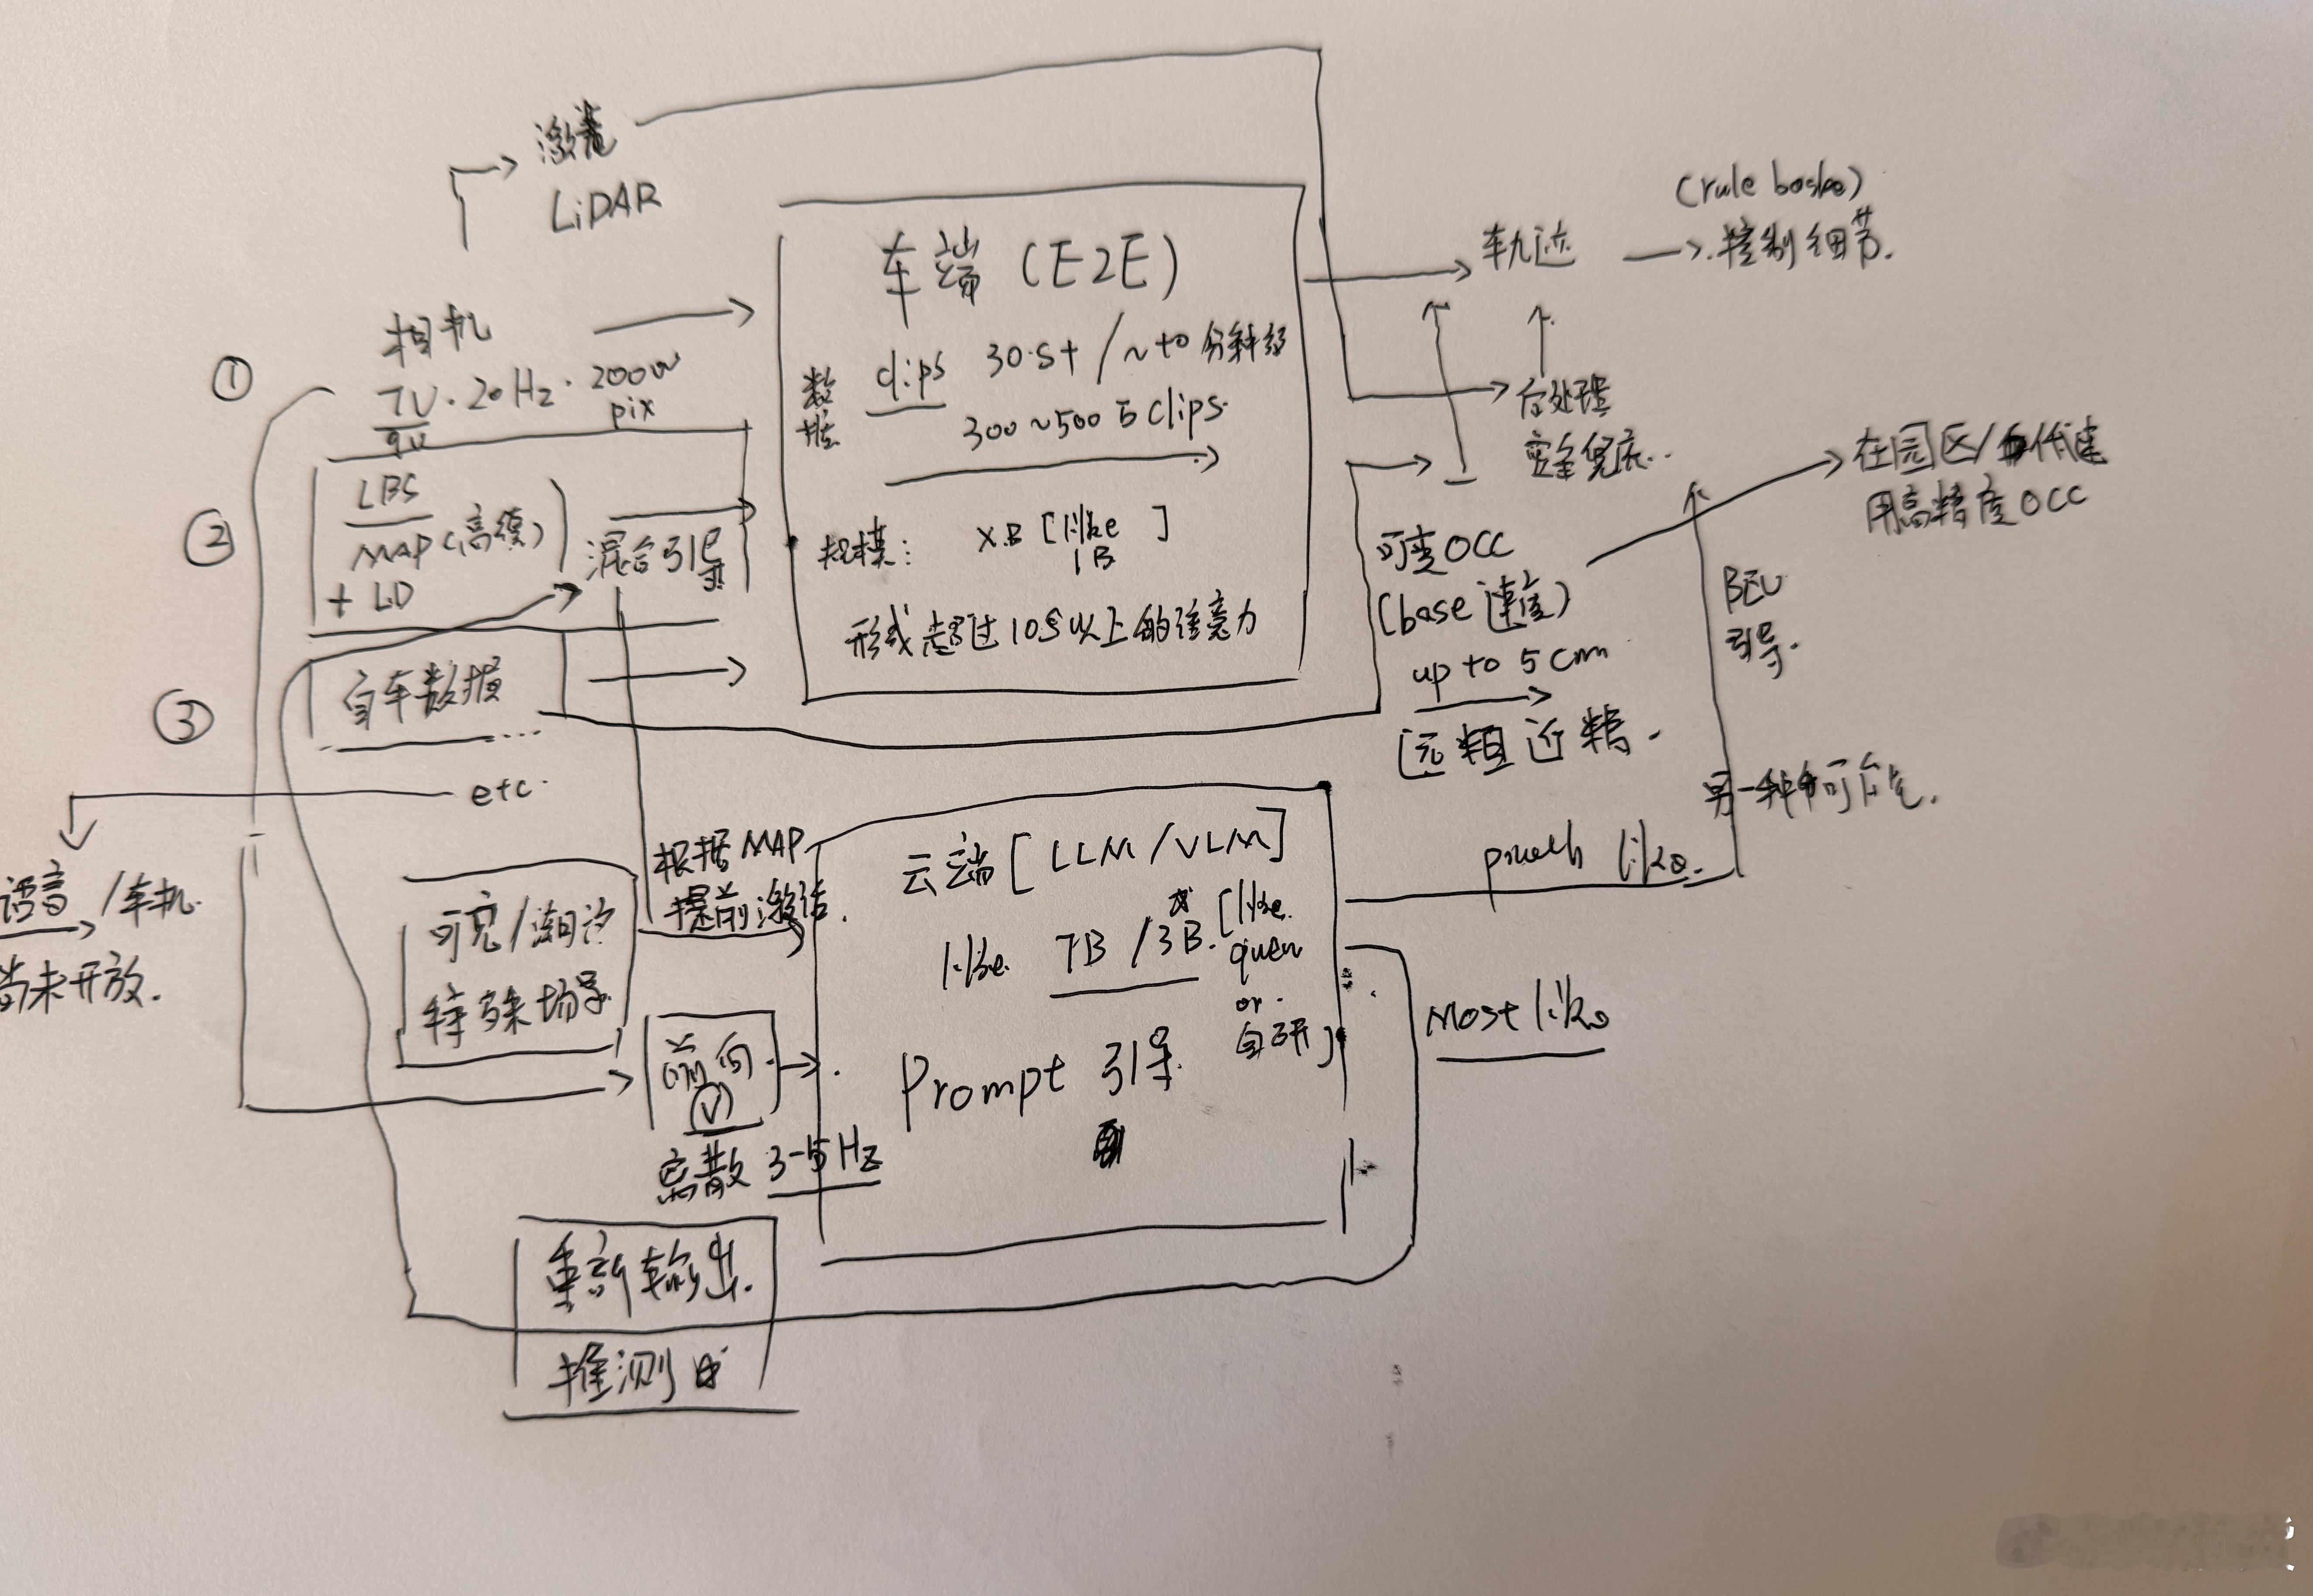 激光
LiDAR
(rule
车端 (E2E)
轨迹
控制细节.
相机
①
7V · 20Hz · 200w
pix
9V
数据
clips 30s+ /~to 分钟级
300~500万 clips.
后处理
安全兜底..
②
LBS
MAP (高德)
+ LD
混合引导
规模: XB [like
1B ]
形成超过10s以上的注意力
可变OCC
(base 速度)
up to 5cm
远粗近精.
在园区/低速
用高精度OCC
BEV
引导.
③
自车数据
...
etc.
语音/车机.
尚未开放.
另一种可能.
like.
根据MAP
提前激活.
云端 [LLM/VLM]
like 7B /3B. [like.
or.
自研]
Prompt 引导
可变/潮汐
特殊场景
前向
(V)
离散 3-5Hz
Most like
重新输出.
推测